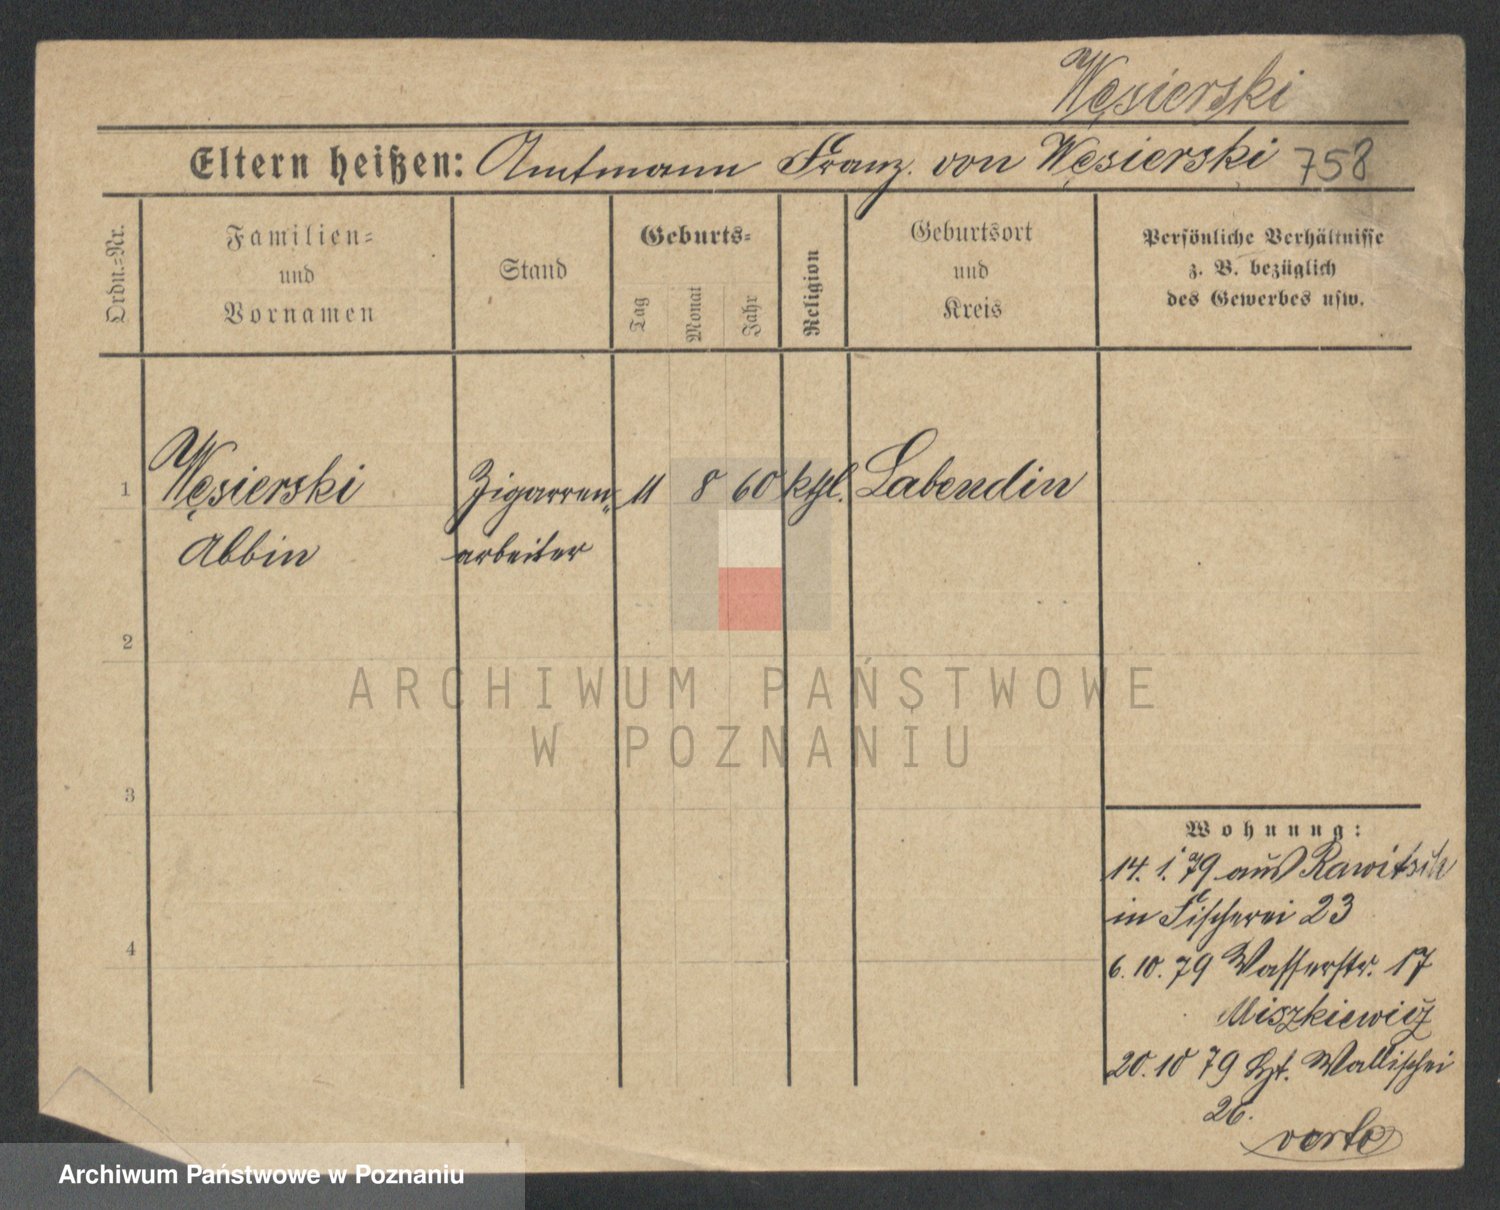 Węsierski
Eltern heißen: Amtmann Franz. von Węsierski 758
Ordn.-Nr.
Familien-
und
Vornamen
Stand
Geburts-
Tag
Monat
Jahr
Religion
Geburtsort
und
Kreis
Persönliche Verhältnisse
z. B. bezüglich
des Gewerbes usw.
1 Węsierski Zigarren- 11 8 60 kthl. Labendin
Albin arbeiter
2
3
4
ARCHIWUM PAŃSTWOWE
W POZNANIU
Wohnung:
14. 1. 79 aus Rawitsch
in Fischerei 23
6. 10. 79 Wasserstr. 17
Miszkiewicz
20. 10 79 Wallischei
26.
verte
Archiwum Państwowe w Poznaniu